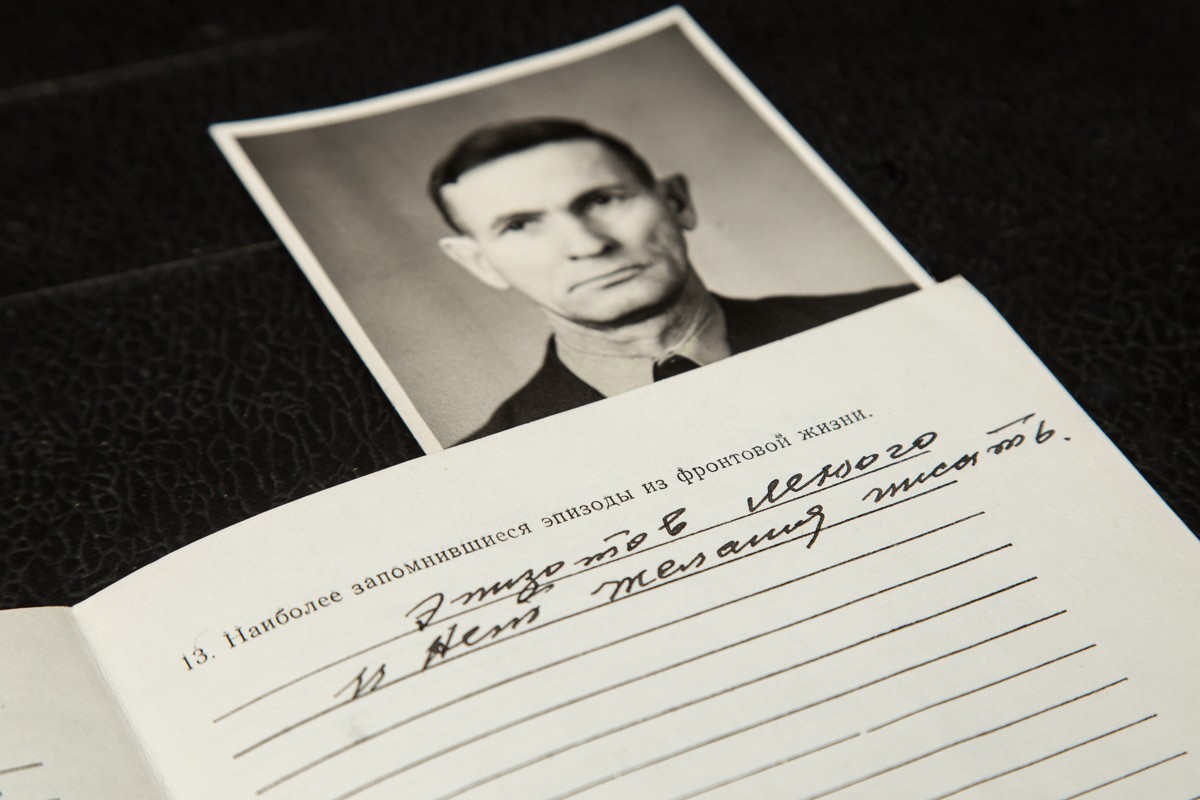 13. Наиболее запомнившиеся эпизоды из фронтовой жизни.
Эпизотов много
и нет желания писать.